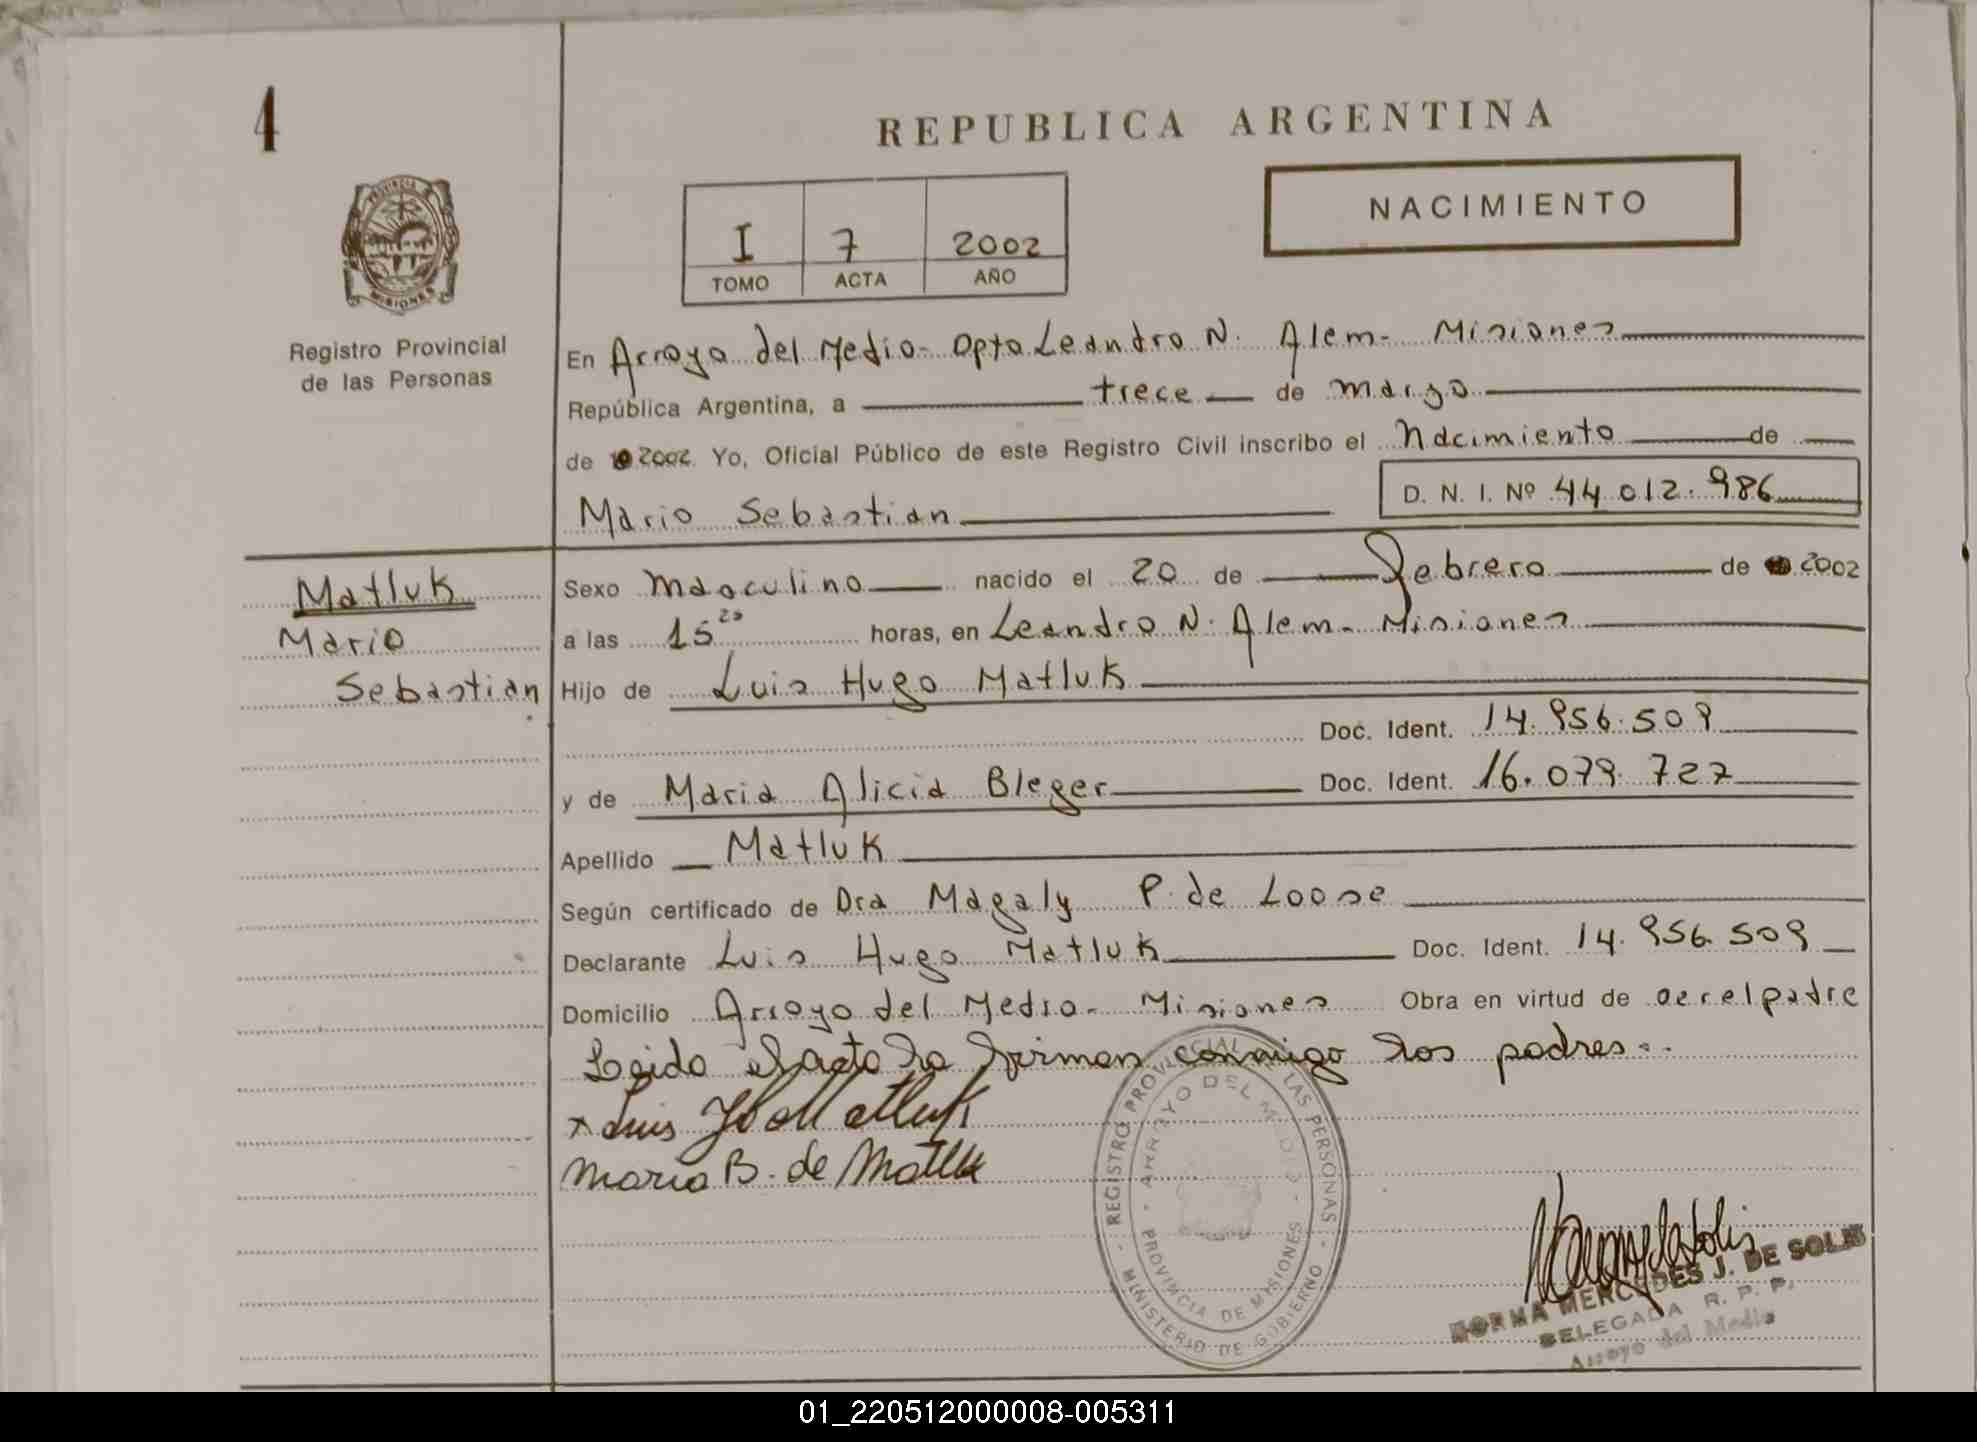 4
REPUBLICA ARGENTINA
PROVINCIA
MISIONES
NACIMIENTO
I 7 2002
TOMO ACTA AÑO
Registro Provincial
de las Personas
En Arroyo del Medio- Dpto Leandro N. Alem- Misiones
República Argentina, a trece de marzo
de 2002 Yo, Oficial Público de este Registro Civil inscribo el Nacimiento de
D. N. I. Nº 44.012.986
Mario Sebastian
Matluk
Mario
Sebastian
Sexo masculino nacido el 20 de Febrero de 2002
a las 15 20 horas, en Leandro N. Alem- Misiones
Hijo de Luis Hugo Matluk
Doc. Ident. 14.956.509
y de Maria Alicia Bleger Doc. Ident. 16.079.727
Apellido Matluk
Según certificado de Dra Magaly P. de Loose
Declarante Luis Hugo Matluk Doc. Ident. 14.956.509
Domicilio Arroyo del Medio- Misiones Obra en virtud de ser el padre
Leido el acta la firman conmigo los padres..
x Luis H Matluk
Maria B. de Matluk
REGISTRO PROVINCIAL LAS PERSONAS
MINISTERIO DE GOBIERNO
ARROYO DEL MEDIO
PROVINCIA DE MISIONES
NORMA MERCEDES J. DE SOLIS
DELEGADA R. P. P.
Arroyo del Medio
01_220512000008-005311